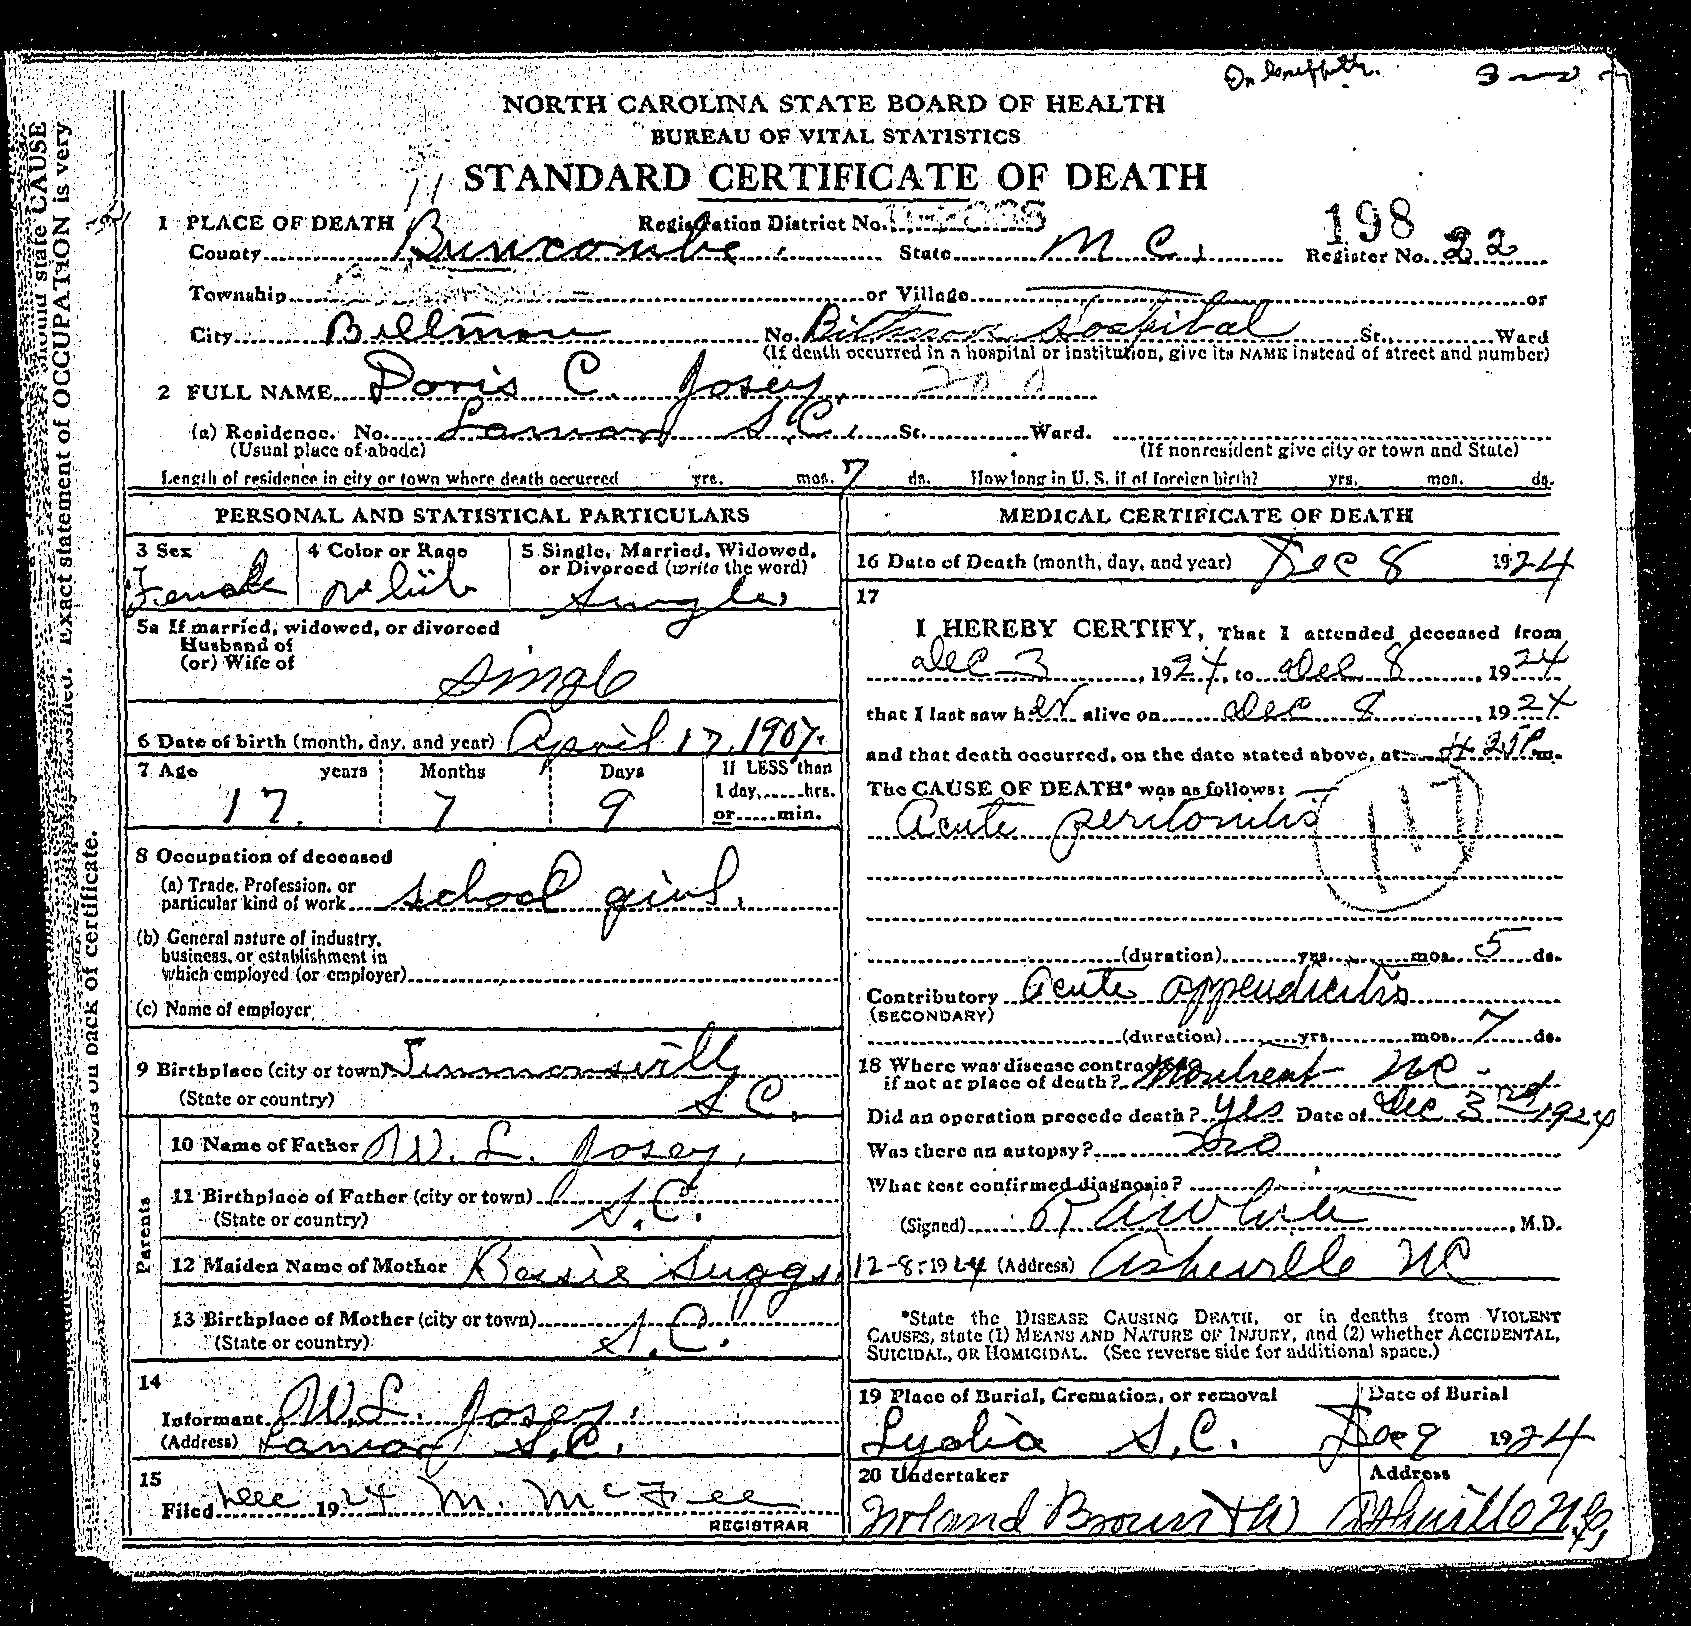 3
NORTH CAROLINA STATE BOARD OF HEALTH
BUREAU OF VITAL STATISTICS
STANDARD CERTIFICATE OF DEATH
should state CAUSE
Exact statement of OCCUPATION is very
on back of certificate.
1 PLACE OF DEATH Registration District No. 198
County Buncombe. State N C. Register No. 22
Township or Village or
City Biltmore No. Biltmore Hospital St., Ward
(If death occurred in a hospital or institution, give its NAME instead of street and number)
2 FULL NAME Doris C. Josey.
(a) Residence. No. Lamar S.C. St. Ward.
(Usual place of abode) (If nonresident give city or town and State)
Length of residence in city or town where death occurred yrs. mos. 7 ds. How long in U. S. if of foreign birth? yrs. mos. ds.
PERSONAL AND STATISTICAL PARTICULARS
3 Sex 4 Color or Race 5 Single, Married, Widowed,
or Divorced (write the word)
Female White Single
5a If married, widowed, or divorced
Husband of
(or) Wife of
Single
6 Date of birth (month, day, and year) April 17, 1907.
7 Age years Months Days If LESS than
1 day, hrs.
17. 7 9 or min.
8 Occupation of deceased
(a) Trade, Profession, or
particular kind of work school girl.
(b) General nature of industry,
business, or establishment in
which employed (or employer)
(c) Name of employer
9 Birthplace (city or town) Timmonsville
(State or country) S C.
Parents
10 Name of Father W. L. Josey.
11 Birthplace of Father (city or town)
(State or country) S.C.
12 Maiden Name of Mother Bessie Suggs
13 Birthplace of Mother (city or town)
(State or country) S.C.
14
Informant W.L. Josey.
(Address) Lamar S.C.
15
Filed Dec 1924 M. McFee
REGISTRAR
MEDICAL CERTIFICATE OF DEATH
16 Date of Death (month, day, and year) Dec 8 1924
17
I HEREBY CERTIFY, That I attended deceased from
Dec 3, 1924, to Dec 8, 1924
that I last saw her alive on Dec 8, 1924
and that death occurred, on the date stated above, at 4 25 P. m.
The CAUSE OF DEATH* was as follows:
Acute peritonitis
117
(duration) yrs. mos. 5 ds.
Contributory Acute appendicitis
(SECONDARY)
(duration) yrs. mos. 7 ds.
18 Where was disease contracted
if not at place of death? Montreat NC
Did an operation precede death? Yes Date of Dec 3rd 1924
Was there an autopsy? no
What test confirmed diagnosis?
(Signed) R A White, M.D.
12-8-1924 (Address) Asheville NC
*State the DISEASE CAUSING DEATH, or in deaths from VIOLENT
CAUSES, state (1) MEANS AND NATURE OF INJURY, and (2) whether ACCIDENTAL,
SUICIDAL, OR HOMICIDAL. (See reverse side for additional space.)
19 Place of Burial, Cremation, or removal Date of Burial
Lydia S.C. Dec 9 1924
20 Undertaker Address
Noland Brown & Co Ashville N.C.